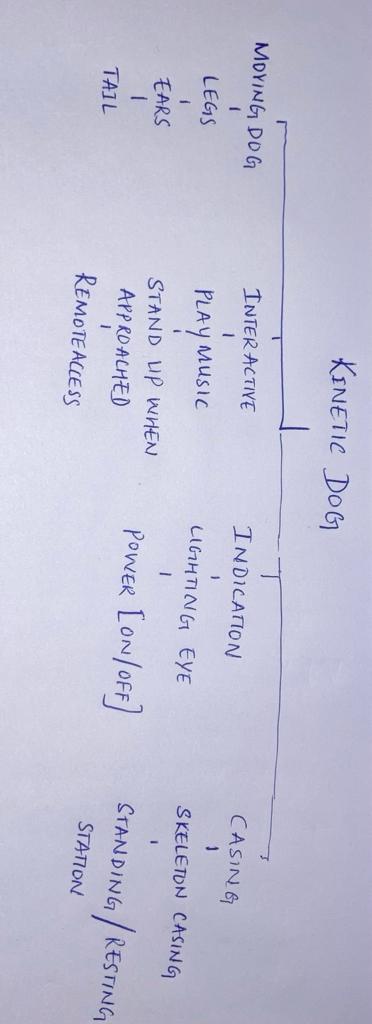 KINETIC DOG
MOVING DOG
LEGS
EARS
TAIL
INTERACTIVE
PLAY MUSIC
STAND UP WHEN
APPROACHED
REMOTE ACCESS
INDICATION
LIGHTING EYE
POWER [ON/OFF]
CASING
SKELETON CASING
STANDING/RESTING
STATION